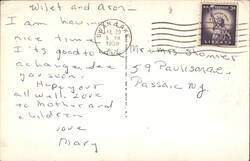 Wilet and Aron-
I am having
nice time
It's good to
a change. See
you soon.
Hope your
all well. Love
to Mother and
children
love
Mary
Mr & Mrs Stomer
59 Paulison Ave
Passaic NJ
LIBERTY